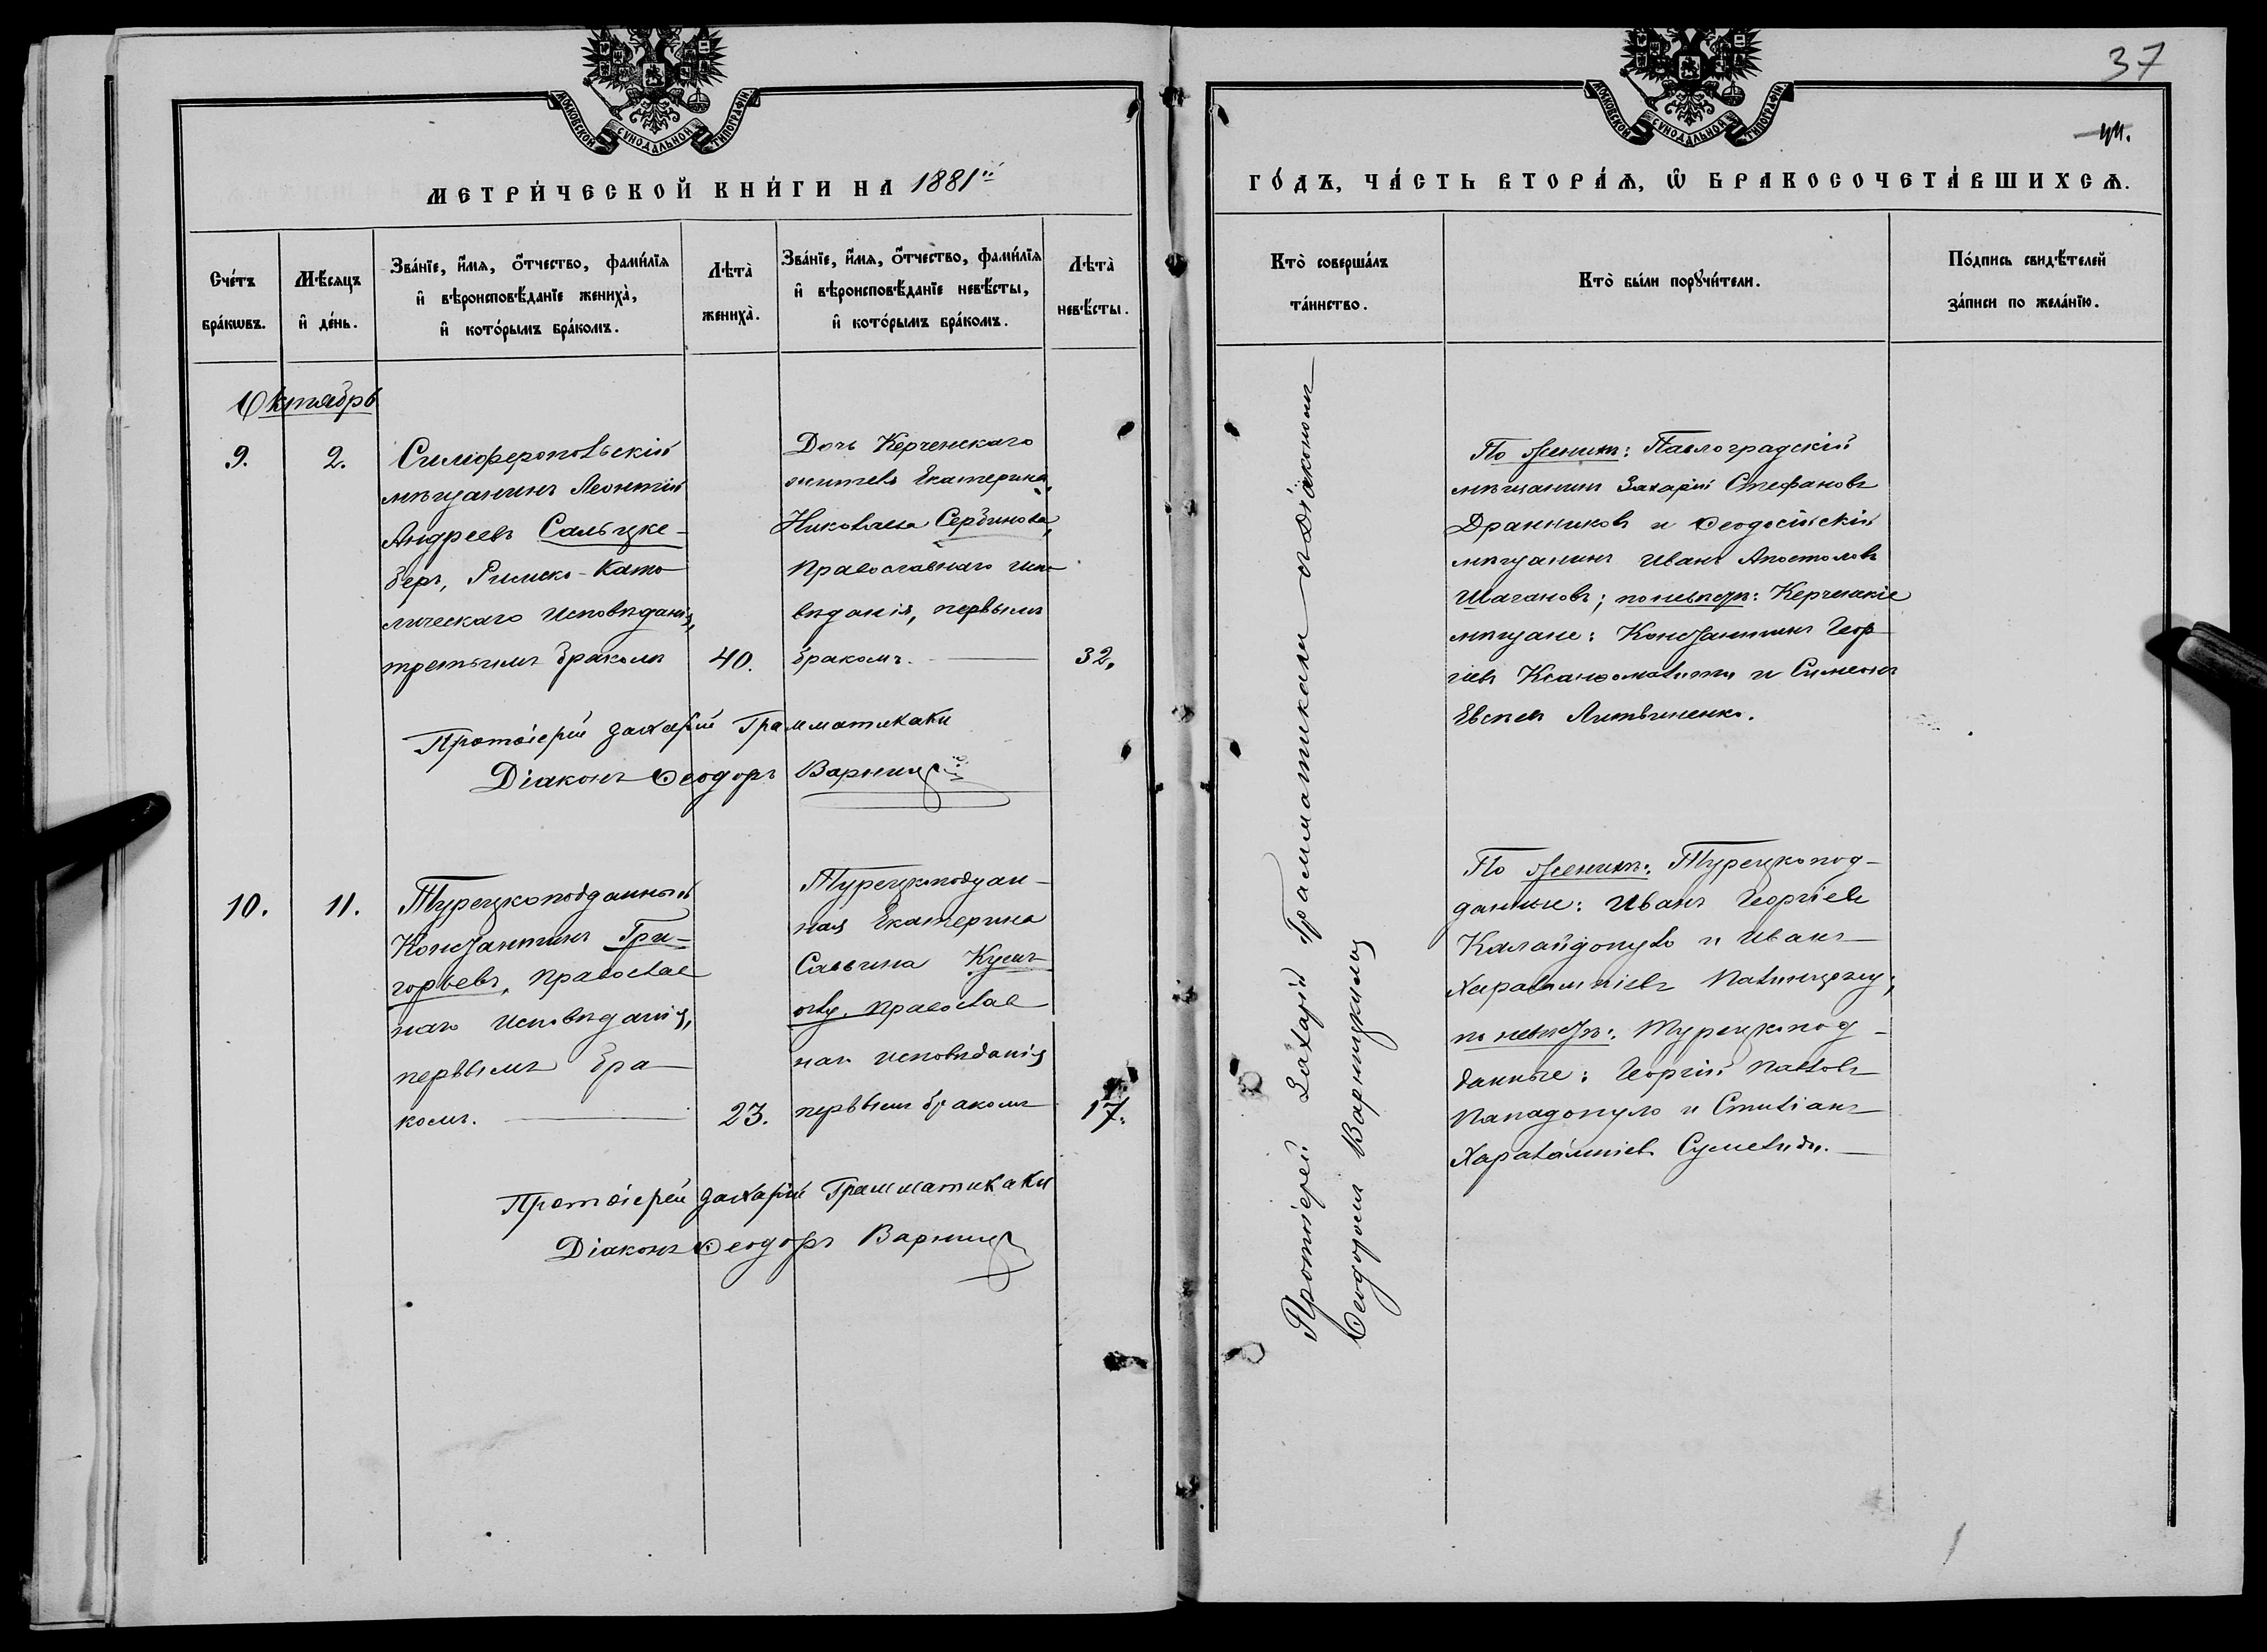 МОСКОВСКОЙ СѴНОДАЛЬНОЙ ТИПОГРАФІИ
МЕТРИ́ЧЕСКОЙ КНИ́ГИ НА 1881й
Сче́тъ бра́кѡвъ.
Мѣ́сяцъ и҆ де́нь.
Зва́нїе, и҆́мя, ѻ҆́тчество, фами́лїя
и҆ вѣроисповѣ́данїе жениха̀,
и҆ кото́рымъ бра́комъ.
Лѣта̀ жениха̀.
Зва́нїе, и҆́мя, ѻ҆́тчество, фами́лїя
и҆ вѣроисповѣ́данїе невѣ́сты,
и҆ кото́рымъ бра́комъ.
Лѣта̀ невѣ́сты.
Октябрь
9.
2.
Симферопольскій
мѣщанинъ Леонтій
Андреевъ Сальцке-
беръ, Римско-Като
лическаго исповѣданія,
третьимъ бракомъ
40.
Дочь Керченскаго
жителя Екатерина
Николаева Сербинова,
православнаго испо
вѣданія, первымъ
бракомъ.
32.
Протоіерей Захарій Грамматикаки
Діаконъ Ѳеодоръ Варницкій
10.
11.
Турецкоподданный
Константинъ Гри-
горьевъ, православ
наго исповѣданія,
первымъ бра
комъ.
23.
Турецкоподдан-
ная Екатерина
Саввина
православ
наго исповѣданія
первымъ бракомъ
17.
Протоіерей Захарій Грамматикаки
Діаконъ Ѳеодоръ Варницкій
37
МОСКОВСКОЙ СѴНОДАЛЬНОЙ ТИПОГРАФІИ
ГО́ДЪ, ЧА́СТЬ ВТОРА́Ѧ, Ѽ БРАКОСОЧЕТА́ВШИХСѦ.
Кто̀ соверша́лъ
та́инство.
Кто̀ бы́ли порꙋчи́тели.
По́дпись свидѣ́телей
за́писи по жела́нїю.
Протоіерей Захарій Грамматикаки съ діакономъ
Ѳеодоромъ Варницкимъ
По женихѣ: Павлоградскій
мѣщанинъ Захарій Стефановъ
Дранниковъ и Ѳеодосійскій
мѣщанинъ Иванъ Апостоловъ
Шагановъ; по невѣстѣ: Керченскіе
мѣщане: Константинъ Геор
гіевъ и Симеонъ
Литвиненко.
По женихѣ: Турецкопод-
данные: Иванъ Георгіевъ
Калайдопуло и Иванъ
Харалампіевъ
по невѣстѣ: Турецкопод-
данные: Георгій Павловъ
Пападопуло и Стиліанъ
Харалампіевъ Сумелиди.